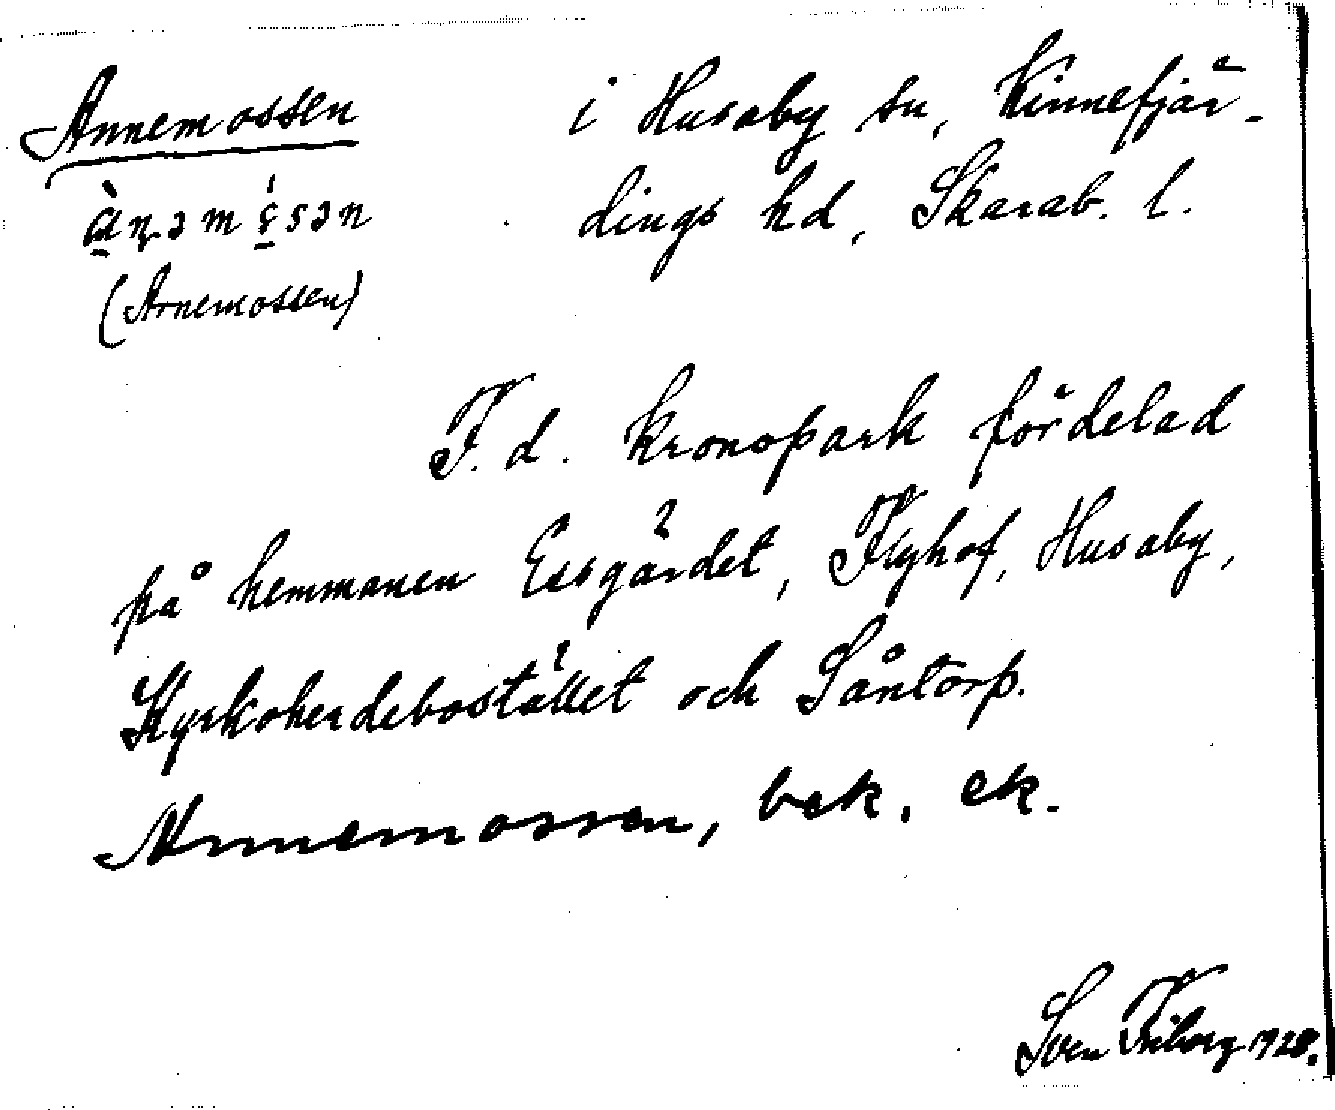 Annemossen i Husaby sn, Kinnefjär-
dings hd, Skarab. l.
(Arnemossen)
F.d. kronopark fördelad
på hemmanen Essgärdet, Flyhof, Husaby,
Kyrkoherdebostället och Såntorp.
Arnemossen, bek. ek.
Sven Friberg 1928.